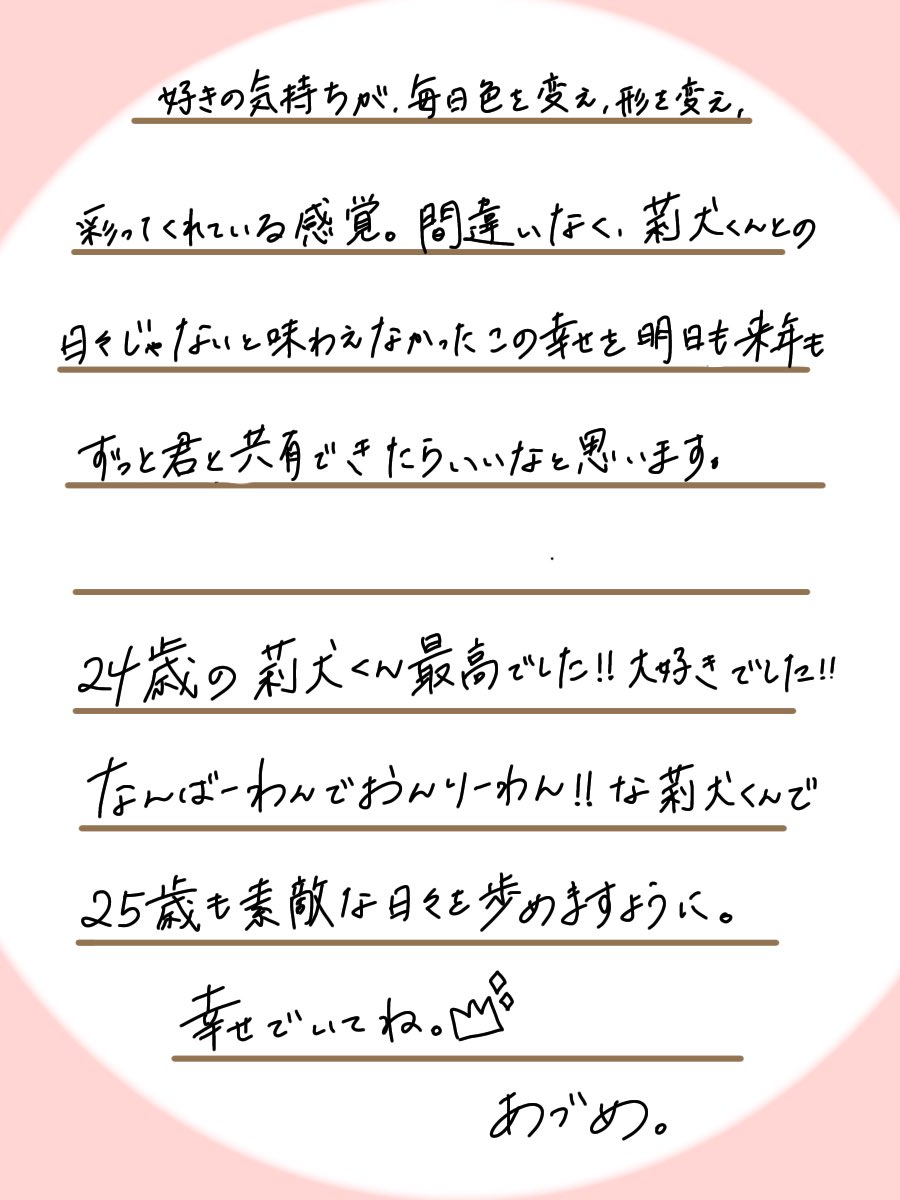 好きの気持ちが、毎日色を変え、形を変え、
彩ってくれている感覚。間違いなく、莉犬くんとの
日々じゃないと味わえなかったこの幸せを明日も来年も
ずっと君と共有できたらいいなと思います。
24歳の莉犬くん最高でした!!大好きでした!!
なんばーわんでおんりーわん!!な莉犬くんで
25歳も素敵な日々を歩めますように。
幸せでいてね。
あづめ。